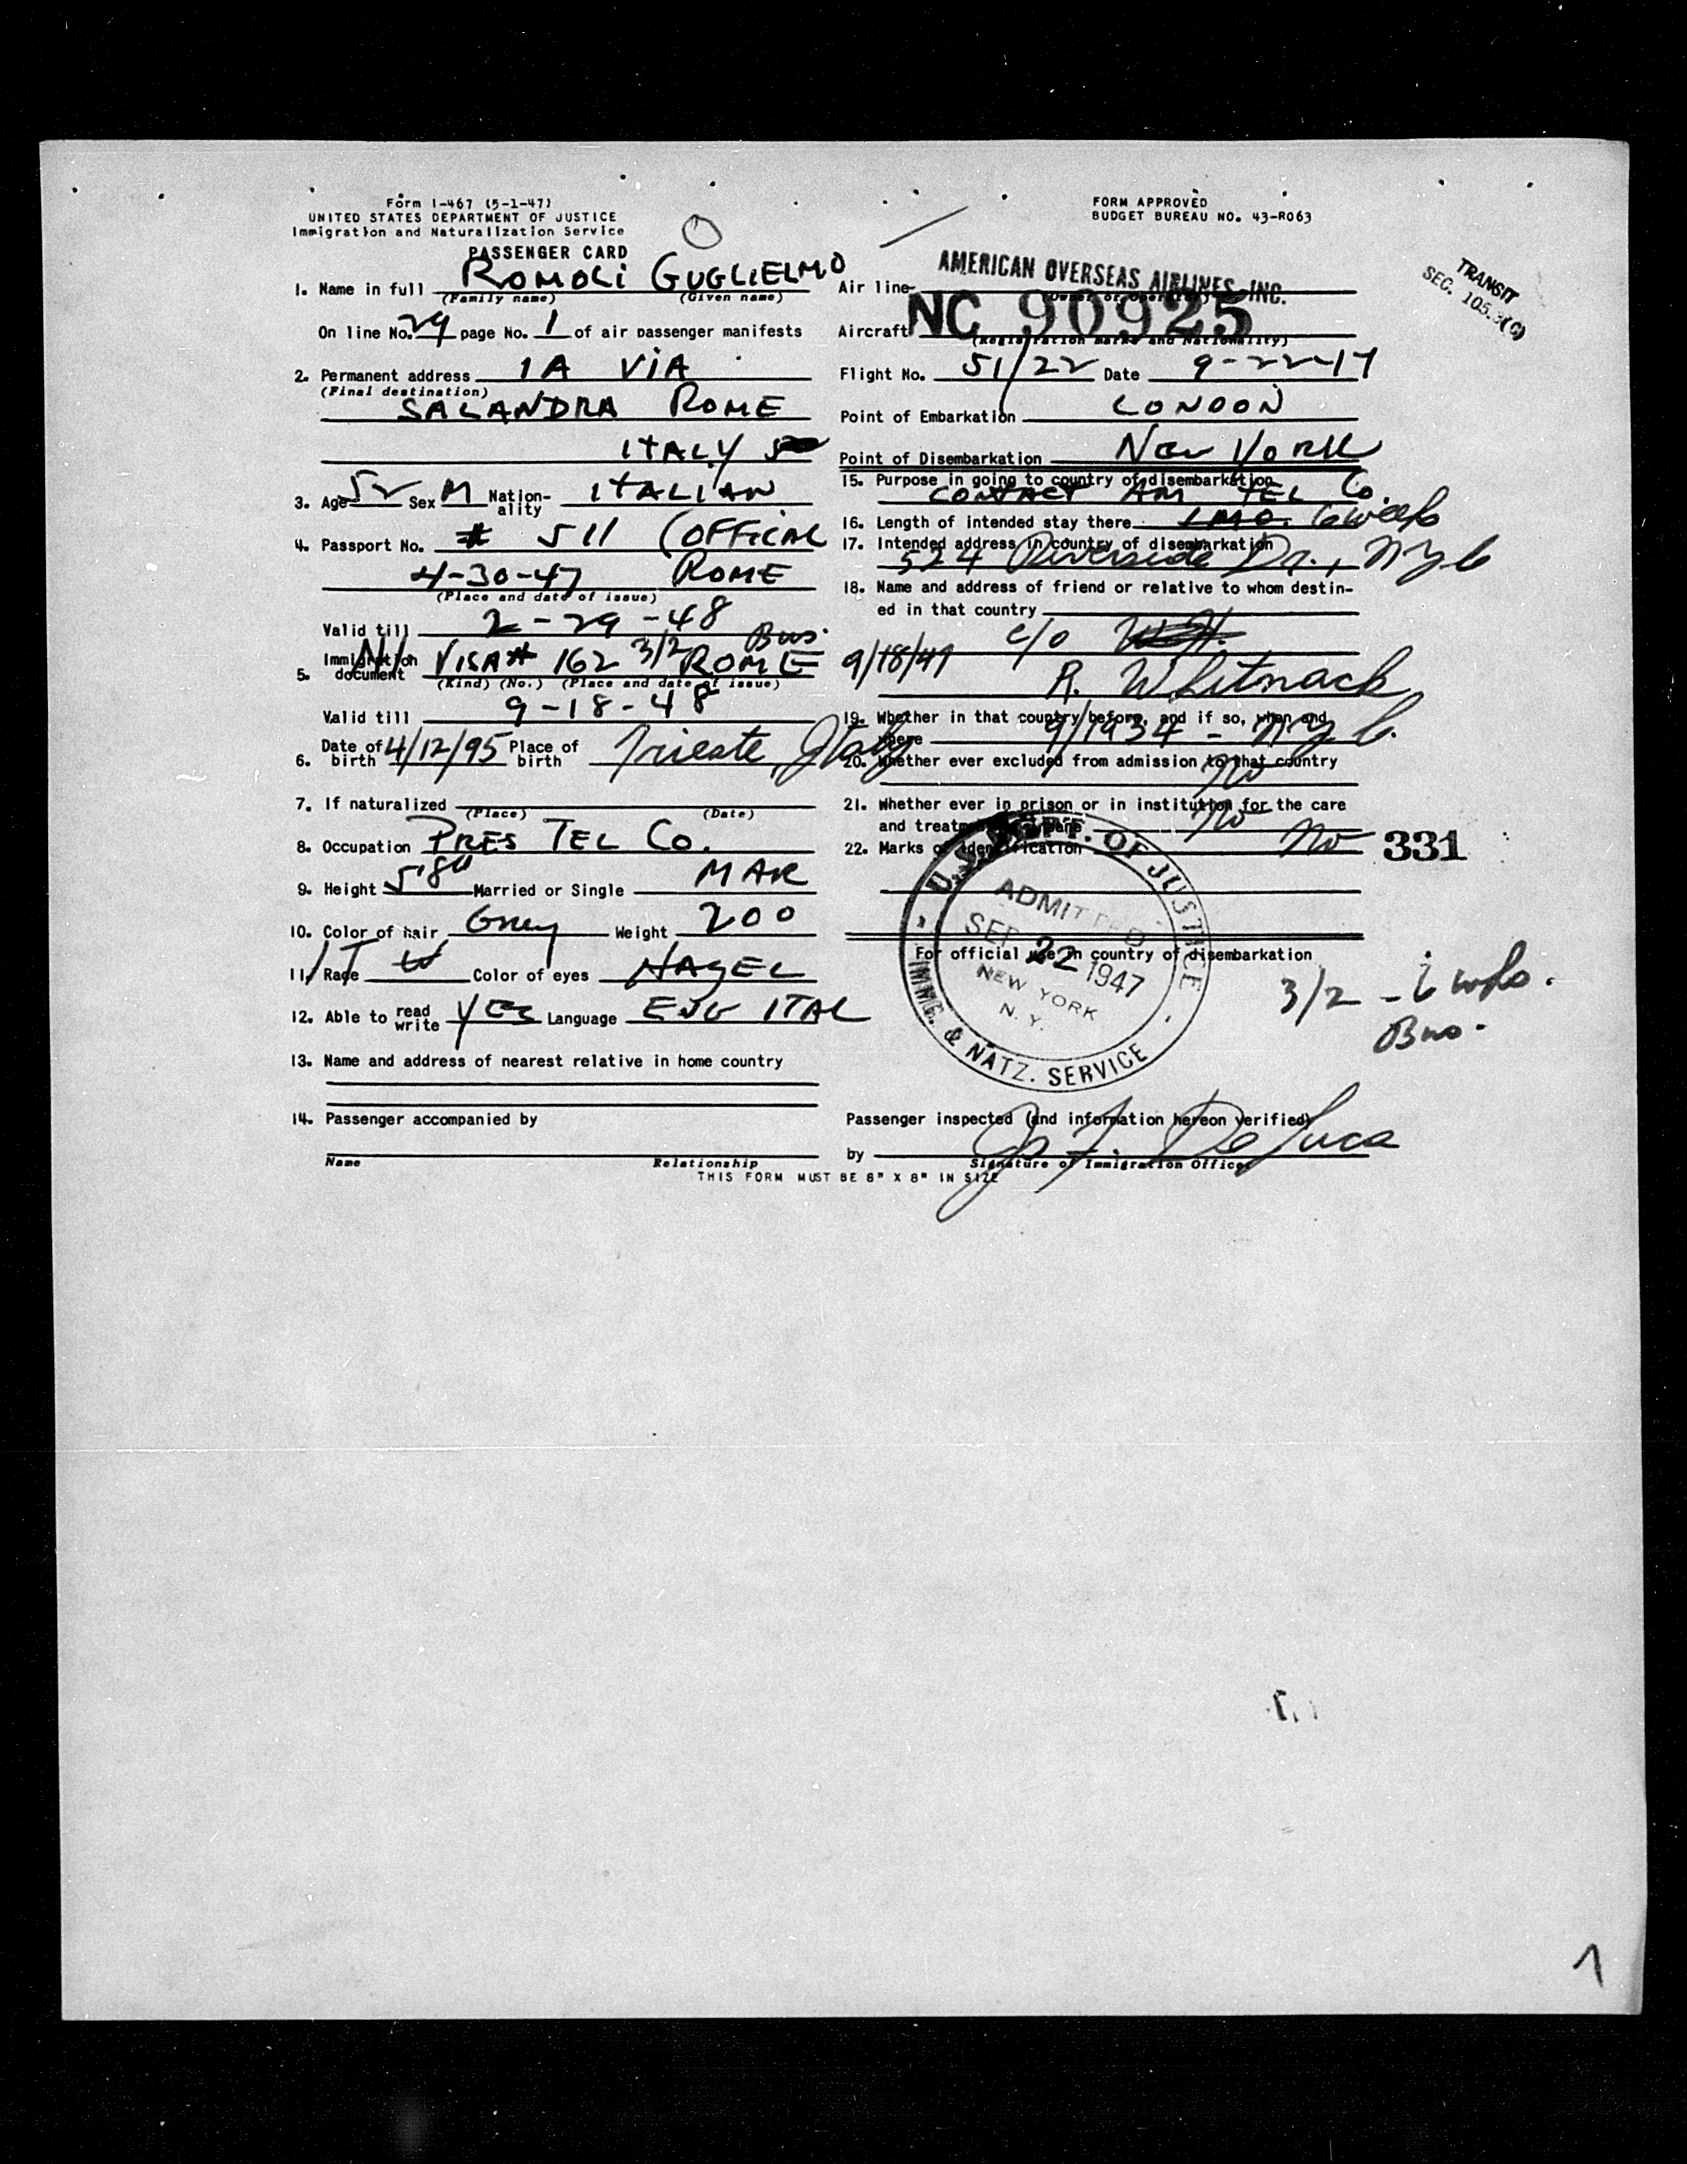 Form I-467 (5-1-47)
UNITED STATES DEPARTMENT OF JUSTICE
Immigration and Naturalization Service
PASSENGER CARD
FORM APPROVED
BUDGET BUREAU NO. 43-R063
TRANSIT
SEC. 105.3(C)
1. Name in full ROMOLI GUGLIELMO
(Family name) (Given name)
On line No. 29 page No. 1 of air passenger manifests
2. Permanent address 1A VIA
(Final destination)
SALANDRA ROME
ITALY
3. Age 52 Sex M Nation-
ality ITALIAN
4. Passport No. # 511 (OFFICAL
4-30-47 ROME
(Place and date of issue)
Valid till 2-29-48
Bus.
5. Immigration
document VISA # 162 3/2 ROME 9/18/47
(Kind) (No.) (Place and date of issue)
Valid till 9-18-48
6. Date of
birth 4/12/95 Place of
birth Trieste, Italy
7. If naturalized
(Place) (Date)
8. Occupation PRES TEL CO.
9. Height 5'8" Married or Single MAR
10. Color of hair Grey Weight 200
11. Race IT W Color of eyes HAZEL
12. Able to read
write YES Language ENG ITAL
13. Name and address of nearest relative in home country
14. Passenger accompanied by
Name Relationship
THIS FORM MUST BE 8" X 8" IN SIZE
Air line AMERICAN OVERSEAS AIRLINES, INC.
(Owner or Operator)
Aircraft NC 90925
(Registration marks and Nationality)
Flight No. 51/22 Date 9-22-47
Point of Embarkation LONDON
Point of Disembarkation NEW YORK
15. Purpose in going to country of disembarkation
CONTACT AM TEL Co.
16. Length of intended stay there 1 MO. 6 weeks
17. Intended address in country of disembarkation
524 Riverside Dr., NYC
18. Name and address of friend or relative to whom destin-
ed in that country
c/o
R. Whitnack
19. Whether in that country before, and if so, when and
where 9/1934 - NYC.
20. Whether ever excluded from admission to that country
No
21. Whether ever in prison or in institution for the care
and treatment of insane No
22. Marks of identification No
331
U.S. DEPT. OF JUSTICE
ADMITTED
SEP 22 1947
NEW YORK
N. Y.
IMMG. & NATZ. SERVICE
For official use in country of disembarkation
3/2 - 6 wks.
Bus.
Passenger inspected (and information hereon verified)
by De Luca
Signature of Immigration Officer